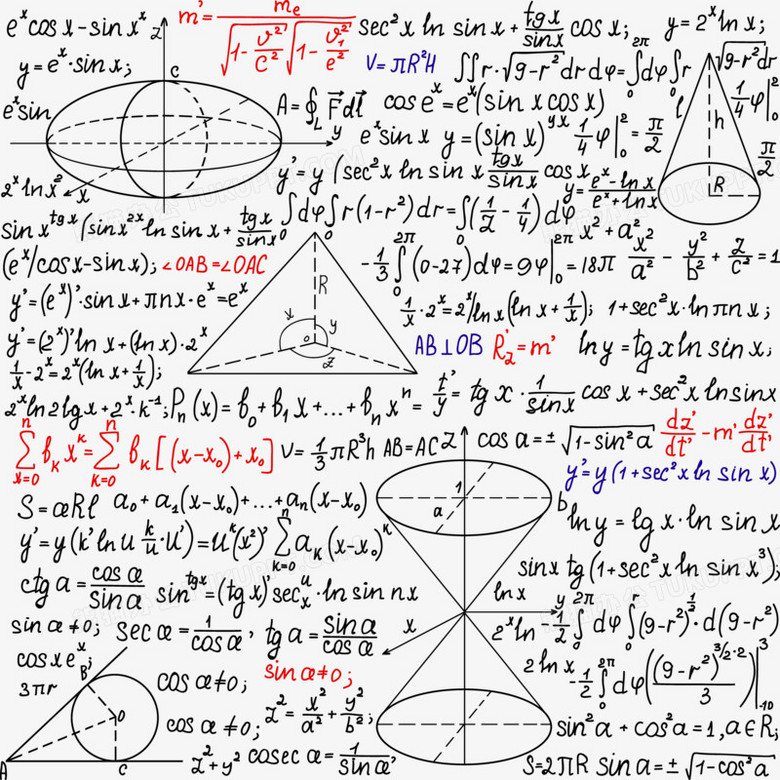 e^x cos x - sin x^x
m' = m_e / √(1 - v²/c²) √(1 - v₁²/e²)
sec²x ln sin x + tgx/sinx cos x;
y = 2^x ln x;
y = e^x · sin x;
V = πR²H
∬ r · √(9-r²) dr dφ = ∫₀^{2π} dφ ∫₀ r √(9-r²) dr
e^x sin
A = ∮_L F⃗ dl⃗
cos e^x = e^x (sin x cos x)
1/4 φ|₀²
e^x sin x y = (sin x)^{yx} 1/4 φ|₀² = π/2
π/2
2^x ln x²
y' = y (sec²x ln sin x tgx/sinx cos x
y = e^x - ln x / e^x + ln x
sin x^{tgx} (sin x^{2x} ln sin x + tgx/sinx
∫₀ dφ ∫₀ r (1-r²) dr = ∫₀ (1/2 - 1/4) dφ
x² + a²
(e^x/cosx - sin x);
∠OAB = ∠OAC
-1/3 ∫₀^{2π} (0-27) dφ = 9φ|₀^{2π} = 18π
x²/a² - y²/b² + z/c² = 1
y' = (e^x)' · sin x + πnx · e^x = e^x
1/x · 2^x = 2^x/ln x (ln x + 1/x);
1 + sec²x · ln πn x;
y' = (2^x)' ln x + (ln x) · 2^x
AB ⊥ OB
R'₂ = m'
ln y = tg x ln sin x;
1/x - 2^x = 2^x (ln x + 1/x);
2^x ln 2 lg x + 2^x · k^{-1};
P_n (x) = b₀ + b₁x + ... + b_n x^n =
t'/y = tg x · 1/sinx cos x + sec²x ln sin x
∑_{x=0}^n b_k x^k = ∑_{k=0}^n b_k [(x-x₀) + x₀]
V = 1/3 πR³h
AB = AC
cos a = ± √(1-sin²a)
dz'/dt' - m' dz'/dt'
y' = y (1 + sec²x ln sin x)
S = æRl
a₀ + a₁(x-x₀) + ... + a_n(x-x₀)
ln y = lg x · ln sin x
y' = y (k' ln u k/u · u') = u^k (x²)' ∑_{k=0}^n a_k (x-x₀)^k
sin x tg (1 + sec²x ln sin x³);
ctg a = cos æ / sin a
sin^{tgx} = (tgx) sec_x^u · ln sin nx
ln x
sin a ≠ 0;
sec æ = 1/cos a,
tg a = sin a / cos æ
2^x ln - 1/2 ∫₀^{2π} dφ ∫₀^r (9-r²)^{1/2} · d(9-r²)
cos x e^x;
3πr
cos æ ≠ 0;
sin æ ≠ 0;
2 ln x - 1/2 ∫₀^{2π} dφ ((9-r²)^{3/2·2} / 3)|₋₁₀³
cos æ ≠ 0;
z² = x²/a² + y²/b²;
sin²a + cos²a = 1, a∈R;
z² + y²
cosec æ = 1/sin æ,
S = 2πR
sin a = ± √(1-cos²a)
z
c
y
x
l
h
R
R
y
o
z
z
1
a
b
y
x
B
O
A
C